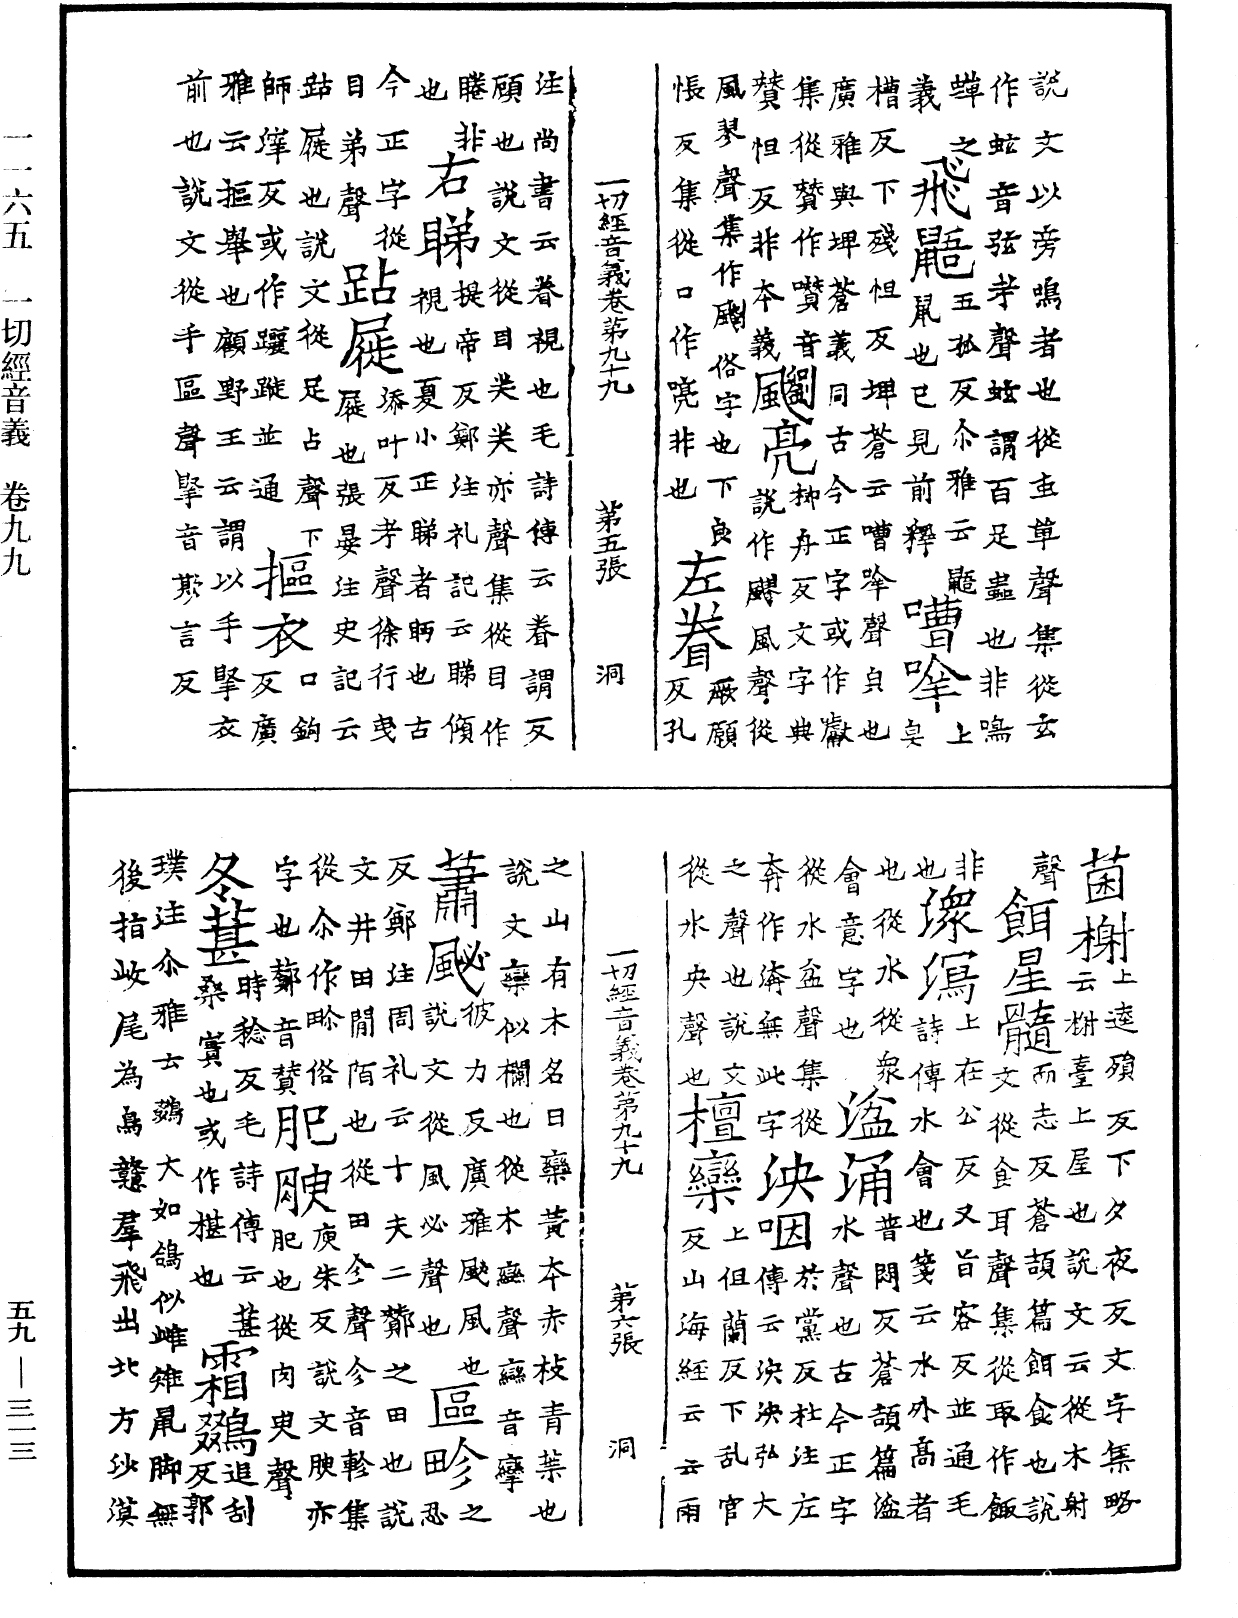 說文以旁鳴者也從虫單聲集從玄
作蚿音弦考聲蚿謂百足蟲也非鳴
蟬之
義 飛鼯五孤反尒雅云鼯鼠也已見前釋 嘈㖕上皁
槽反下殘怛反埤蒼云嘈㖕聲㒵也
廣雅與埤蒼義同古今正字或作巚
集從贊作囋音
贊怛反非本義 飀亮抑舟反文字典說作飂風聲從
風翏聲集作飀俗字也下良
悵反集從口作喨非也 左眷厥願反孔
一切經音義卷第九十九 第五張 洞
注尚書云眷視也毛詩傳云眷謂反
顧也說文從目𢍏𢍏亦聲集從目作
睠非
也 右睇提帝反鄭注礼記云睇傾視也夏小正睇者眄也古
今正字從
目弟聲 跕屣添叶反考聲徐行曳屣也張晏注史記云
跕屣也說文從足占聲下
師滓反或作躧蹝並通 摳衣口鉤反廣
雅云摳舉也顧野王云謂以手掔衣
前也說文從手區聲掔音欺言反
菌榭上逵殞反下夕夜反文字集略云榭臺上屋也說文云從木射
聲 餌星髓而志反蒼頡篇餌食也說文從食耳聲集從取作飯
非
也 潀瀉上在公反又旨容反並通毛詩傳水會也箋云水外高者
也從水從衆
會意字也 湓涌普悶反蒼頡篇湓水聲也古今正字
從水盆聲集從
奔作渀無此字 泱咽於黨反杜注左傳云泱泱弘大
之聲也說文
從水央聲也 檀欒上但蘭反下乱官反山海經云云雨
一切經音義卷第九十九 第六張 洞
之山有木名曰欒黃本赤枝青葉也
說文欒似欄也從木䜌聲䜌音攣
蕭䬛彼力反廣雅䬛風也說文從風必聲也 區畛之忍
反鄭注周礼云十夫二酇之田也說
文井田間陌也從田㐱聲㐱音軫集
從尒作畍俗
字也酇音贊 肥腴庾朱反說文腴亦肥也從肉臾聲
冬葚時稔反毛詩傳云葚桑實也或作椹也 霜鵽追刮反郭
璞注尒雅云鵽大如鴿似雌雉鼠脚無
後指岐尾為鳥戇羣飛出北方沙漠
一一六五 一切經音義 卷九九
五九—三一三